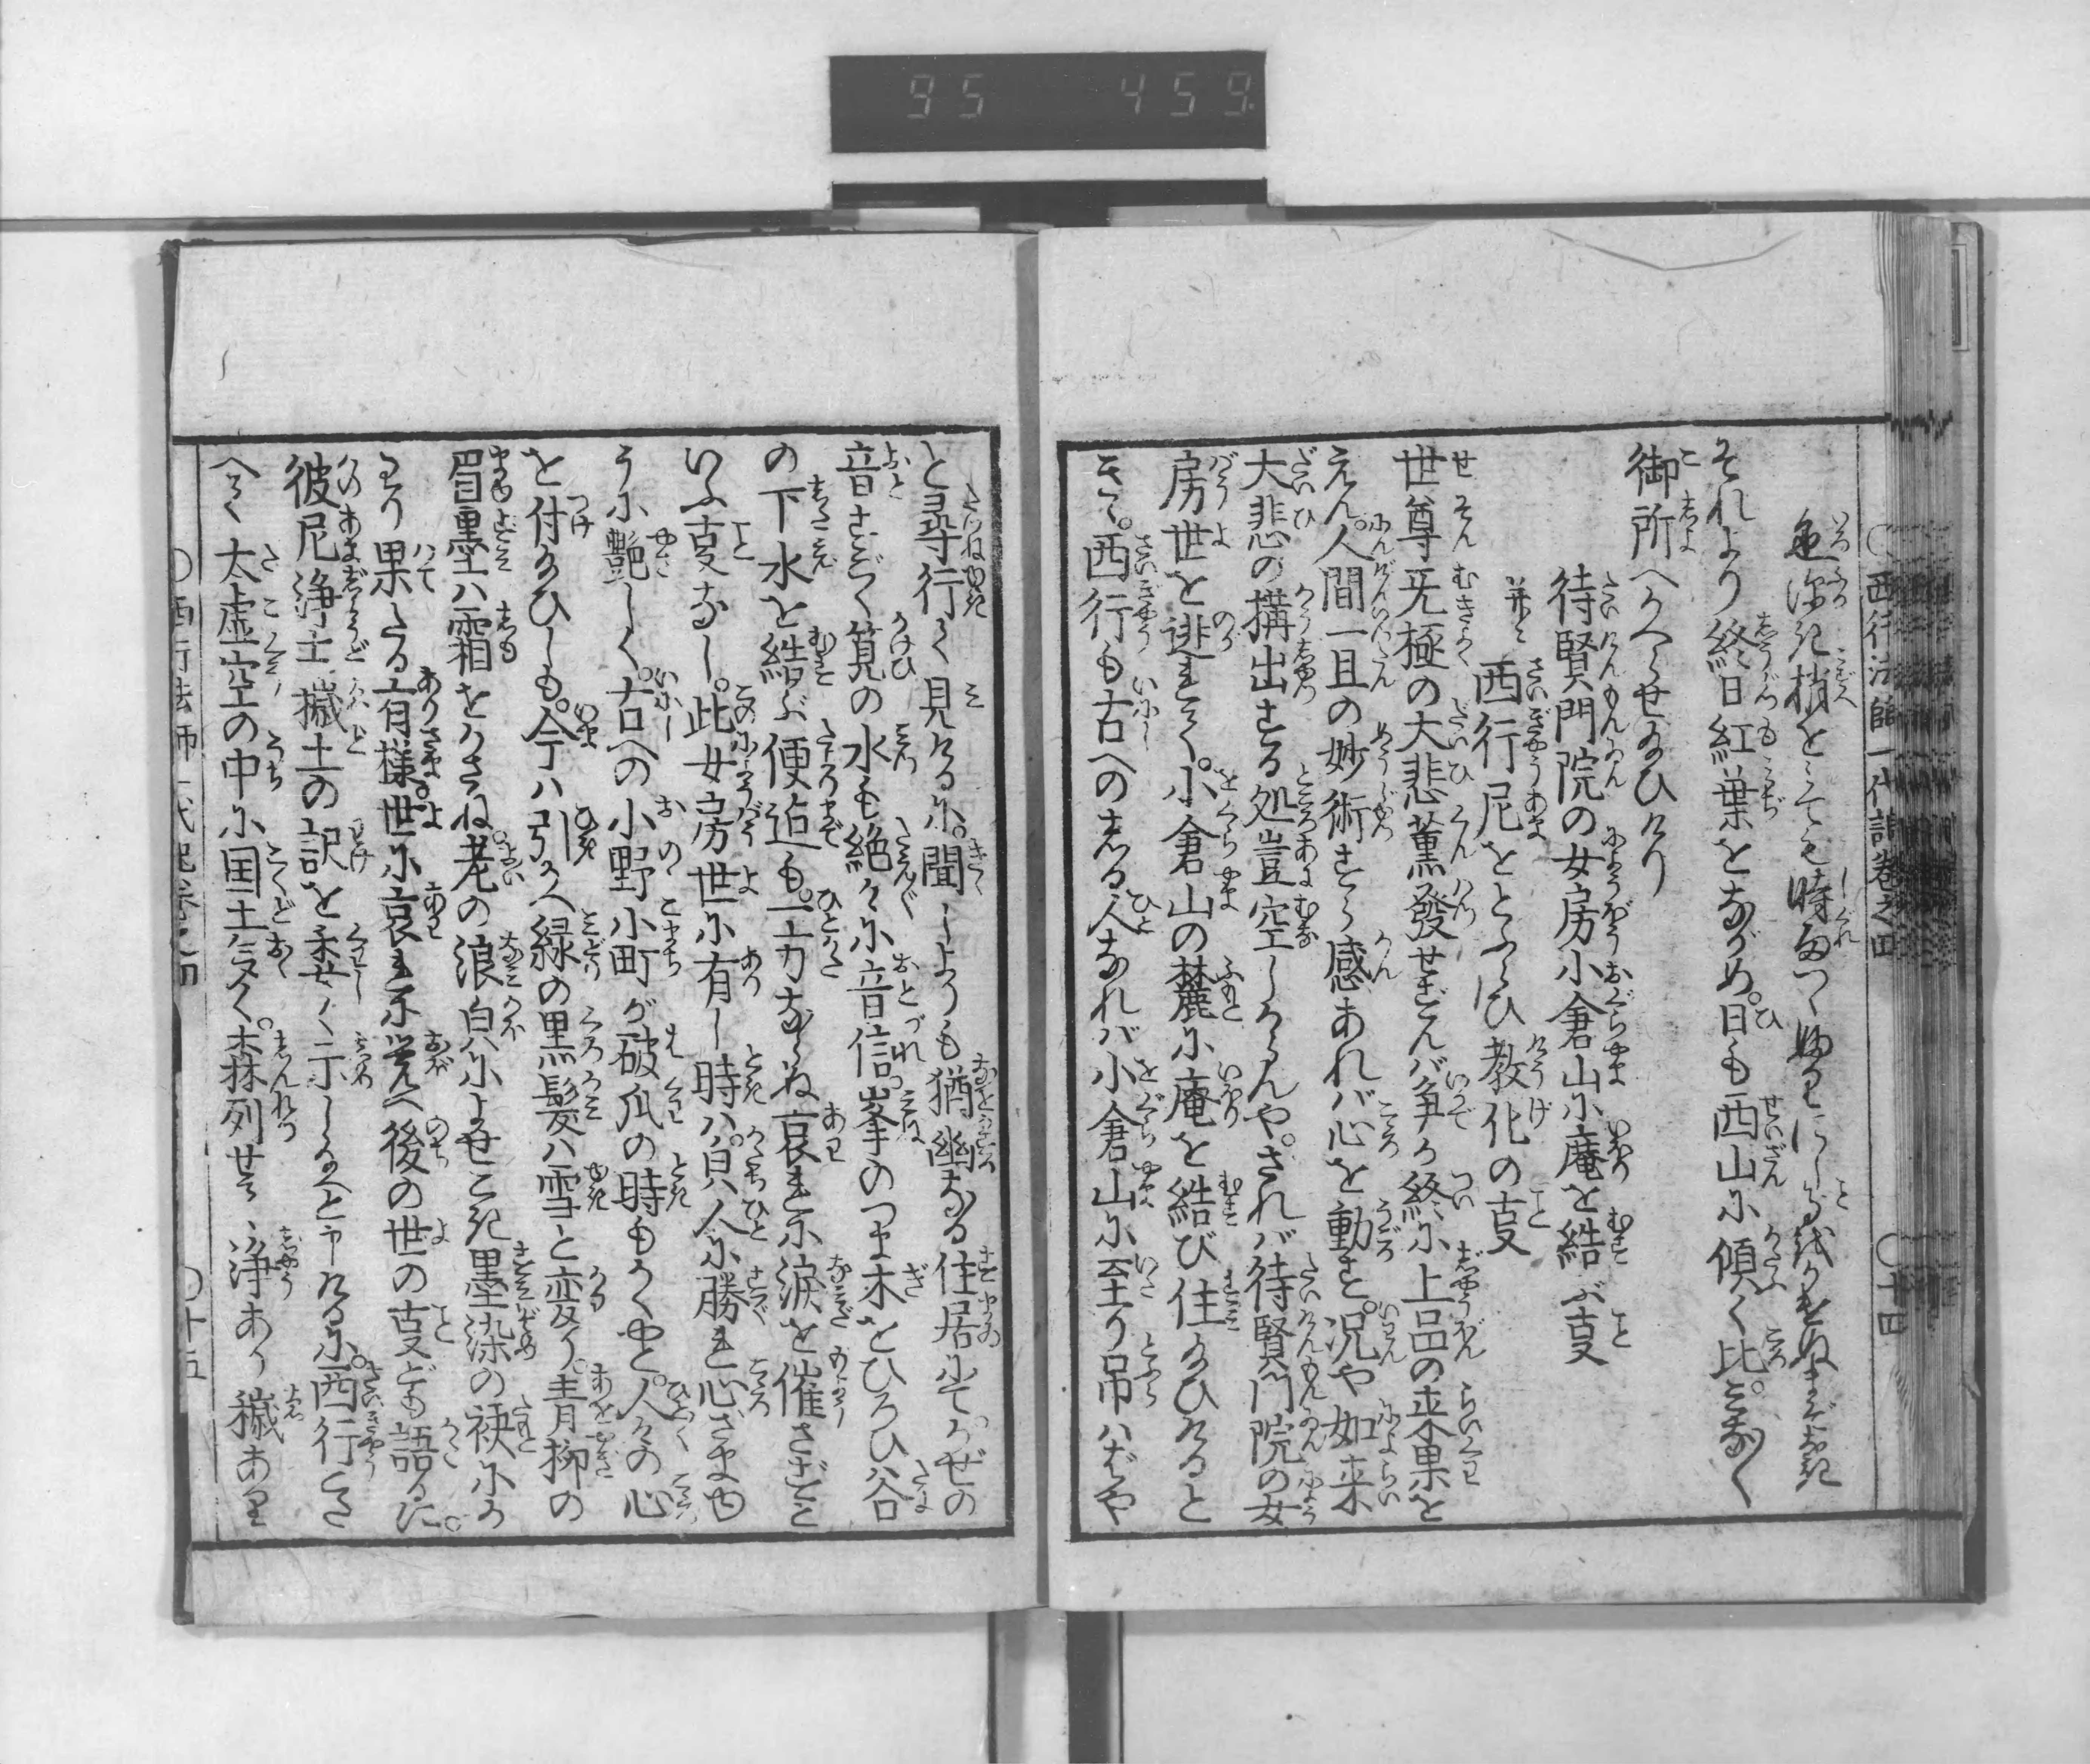 95 459
西行法師一代記巻之四 〇十四
色ふかき梢を
それより終日紅葉をながめ。日も西山に傾く比。みな〳〵
御所へかへらせ給ひけり
待賢門院の女房小倉山に庵を結ぶ事
并に西行尼をとふらひ教化の事
世尊無極の大悲薫發せずんば争か終に上品の来果を
えん。人間一旦の妙術すら感あれバ心を動す。況や如来
大悲の搆出する処豈空しからんや。されバ待賢門院の女
房世を遁れて。小倉山の麓に庵を結び住給ひけると
きく。西行も古へのしる人なれバ小倉山に至り吊ハばや
と尋行て見けるに。聞しよりも猶幽なる住居にて。かぜの
音さびて筧の水も絶々に音信峯のつま木をひろひ谷
の下水を結ぶ便迄も。一方ならぬ哀れに涙を催さずと
いふ事なし。此女房世に有し時ハ。皃人に勝れ心ざまゆ
うに艶しく。古への小野小町が破瓜の時もかくやと。人々の心
を付給ひしも。今ハ引かへ緑の黒髪ハ雪と変り。青柳の
眉墨ハ霜をかさね。老の浪皃によせこき墨染の袂にか
わり果たる有様。世に哀れに覚へ後の世の事ども語るに。
彼尼浄土穢土の訳を委く示し給へと申けるに。西行こた
へて太虚空の中に国土多く。森列せり浄あり穢あり
〇西行法師一代記巻之四 〇十五